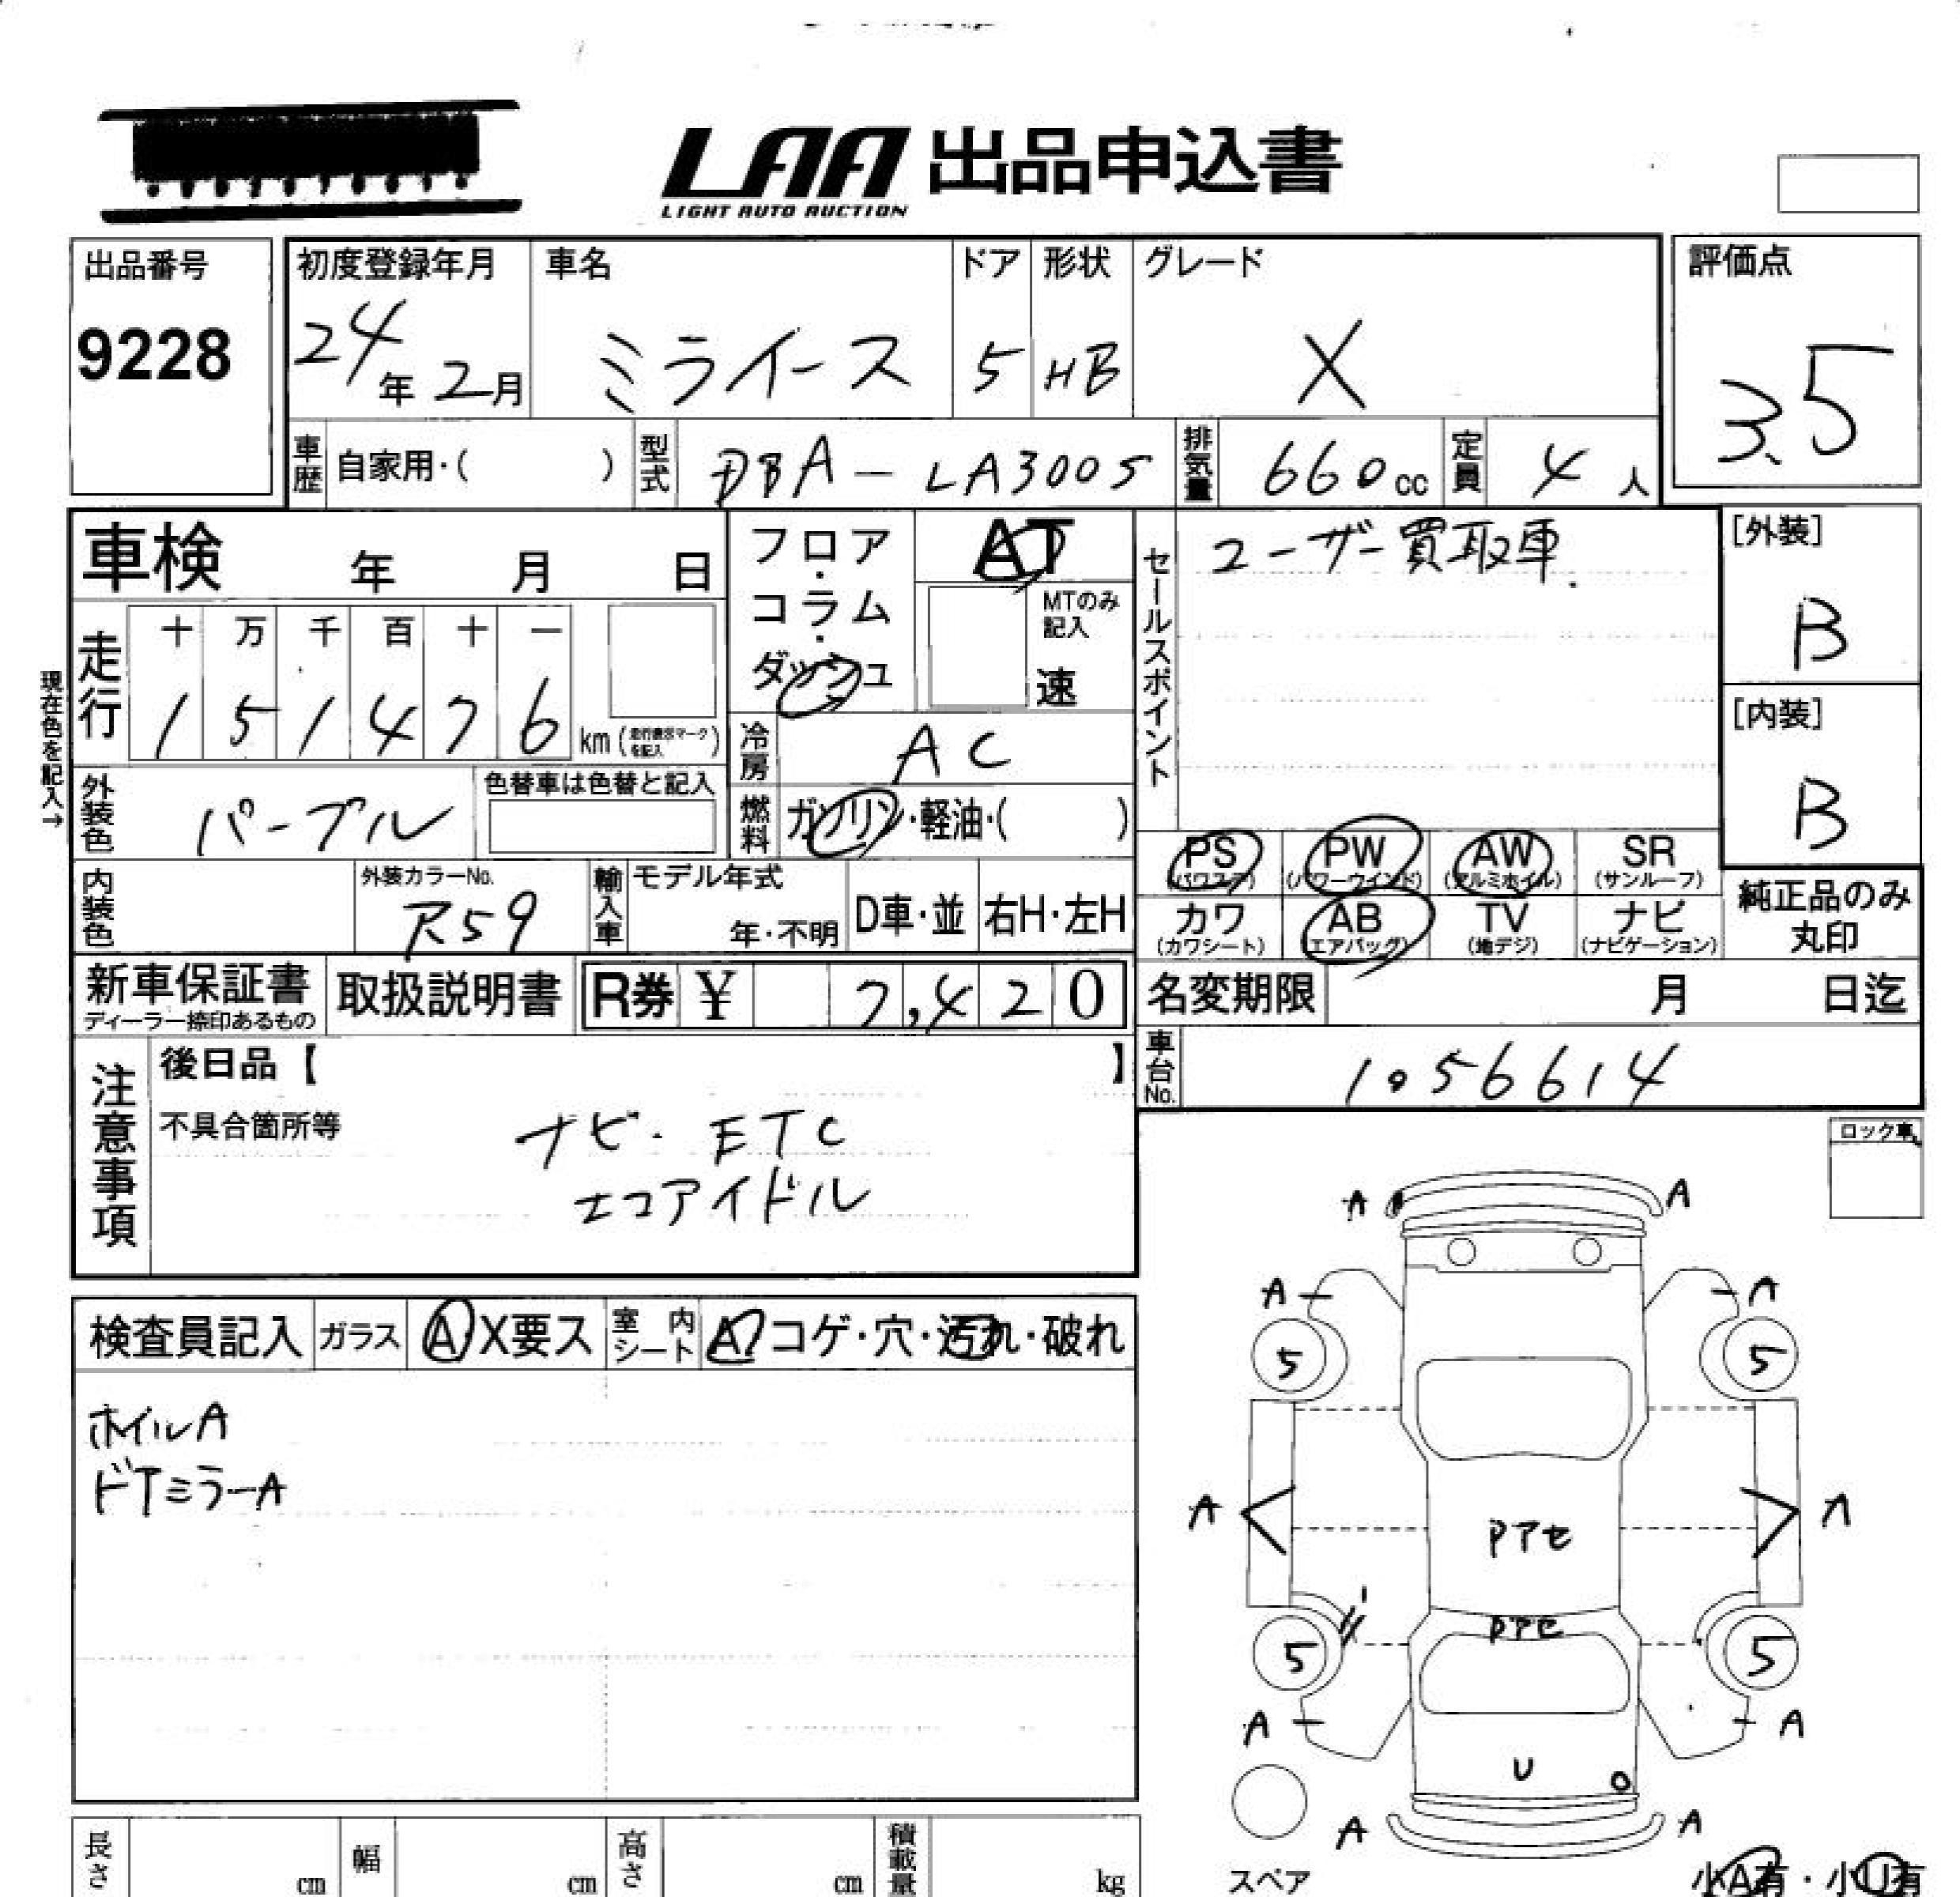 LAA 出品申込書
LIGHT AUTO AUCTION
出品番号
9228
初度登録年月
24年 2月
車名
ミライース
ドア
5
形状
HB
グレード
X
評価点
3.5
車歴 自家用・( )
型式 DBA-LA300S
排気量 660cc
定員 4人
車検 年 月 日
現在色を記入→
走行
十 万 千 百 十 一
1 5 1 4 7 6 km
フロア・コラム・ダッシュ
AT
MTのみ記入
速
冷房 AC
燃料 ガソリン・軽油・( )
セールスポイント
ユーザー買取車.
[外装]
B
[内装]
B
外装色 パープル
色替車は色替と記入
内装色
外装カラーNo.
R59
輸入車
モデル年式
年・不明
D車・並
右H・左H
PS (パワステ)
PW (パワーウインド)
AW (アルミホイル)
SR (サンルーフ)
カワ (カワシート)
AB (エアバッグ)
TV (地デジ)
ナビ (ナビゲーション)
純正品のみ丸印
新車保証書
ディーラー捺印あるもの
取扱説明書
R券 ¥ 7,420
名変期限 月 日迄
車台No. 1056614
注意事項
後日品【 】
不具合箇所等
ナビ・ETC
エコアイドル
ロック車
検査員記入 ガラス A X要ス 室内シート A コゲ・穴・汚れ・破れ
ホイルA
ドアミラーA
A A
A A
5 5
A A
Pアセ
Pアセ
5 5
A A
U
A A
スペア
小A有・小U有
長さ cm 幅 cm 高さ cm 積載量 kg